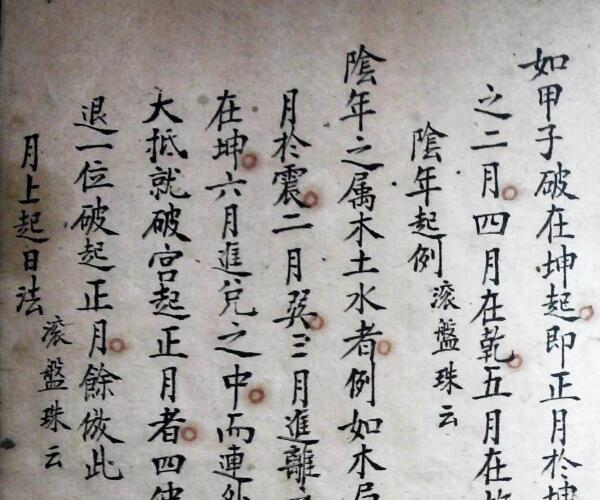 如甲子破在坤起即正月於坤
之二月四月在乾五月在
陰年起例 滾盤珠云
陰年之属木土水者例如木局
月於震二月巽三月進離
在坤六月進兌之中而連
大抵就破宮起正月者四
退一位破起正月餘倣此
月上起日法 滾盤珠云